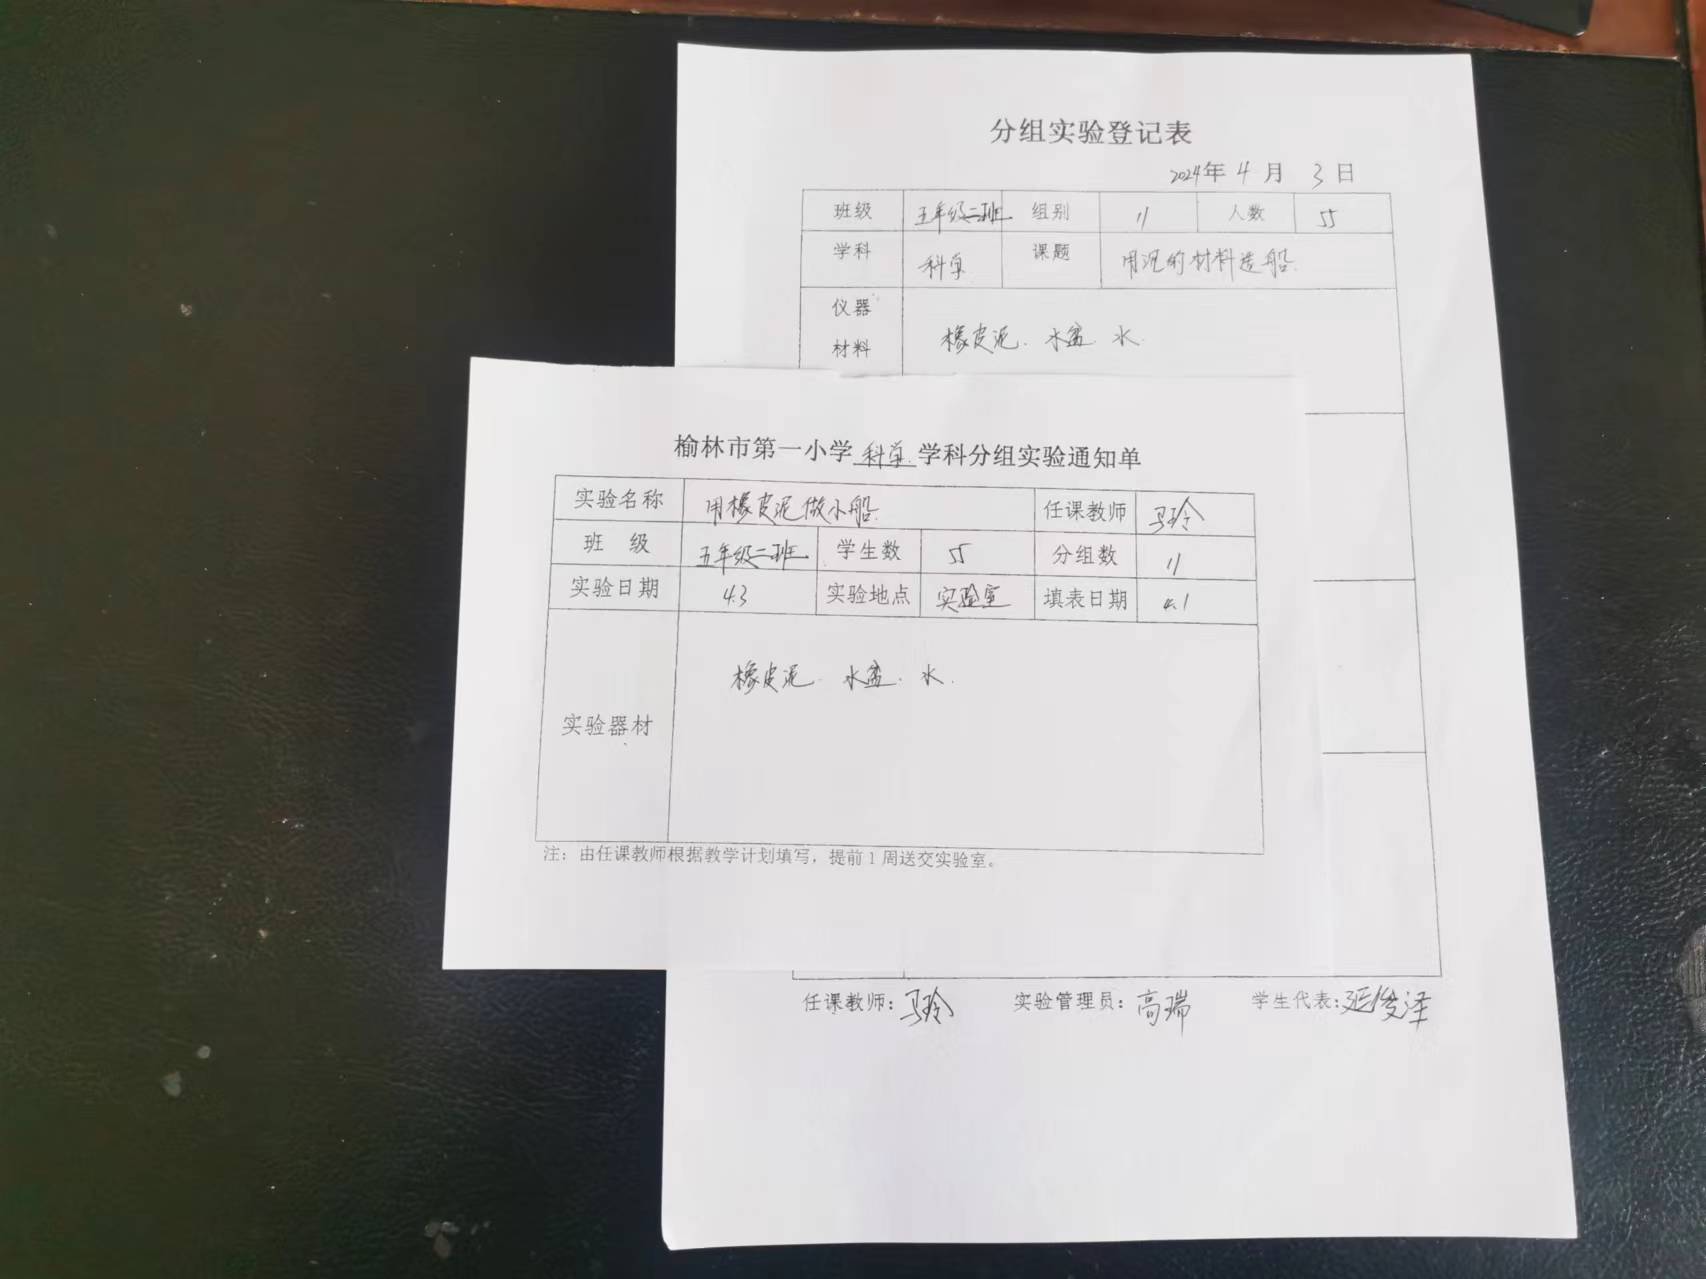 分组实验登记表
2024年 4 月 3 日
班级 五年级二班 组别 11 人数 55
学科 科学 课题 用沉的材料造船
仪器材料 橡皮泥、水盆、水
榆林市第一小学 科学 学科分组实验通知单
实验名称 用橡皮泥做小船 任课教师 马玲
班 级 五年级二班 学生数 55 分组数 11
实验日期 4.3 实验地点 实验室 填表日期 4.1
实验器材 橡皮泥、水盆、水.
注：由任课教师根据教学计划填写，提前1周送交实验室。
任课教师：马玲 实验管理员：高瑞 学生代表：延俊泽